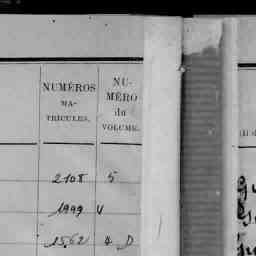 NUMÉROS
MA-
TRICULES.
NU-
MÉRO
du
VOLUME.
2108 5
1999 V
1562 4 D